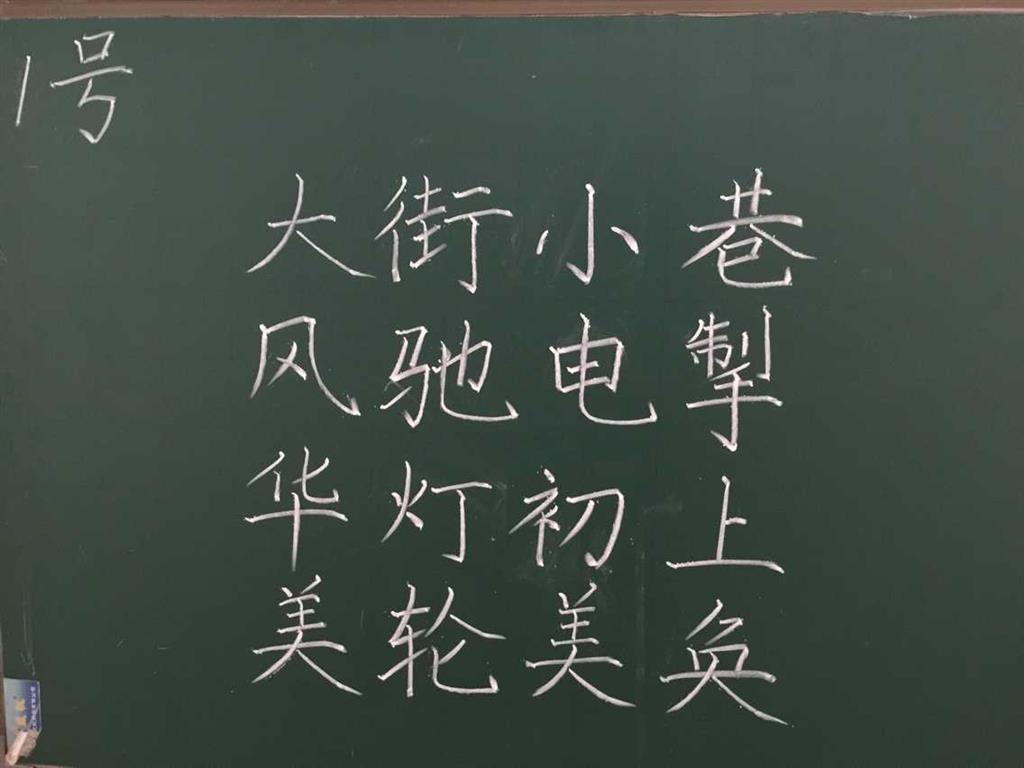 1号
大街小巷
风驰电掣
华灯初上
美轮美奂